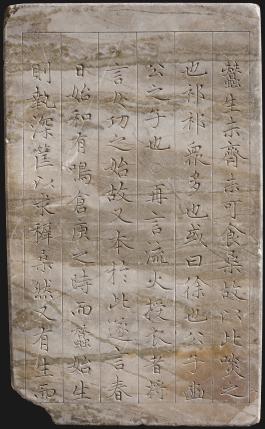 蠶生未齊未可食桑故以此啖之
也祁祁衆多也或曰徐也公子豳
公之子也 再言流火授衣者將
言女功之始故又本於此遂言春
日始和有鳴倉庚之時而蠶始生
則執深筐以求穉桑然又有生而